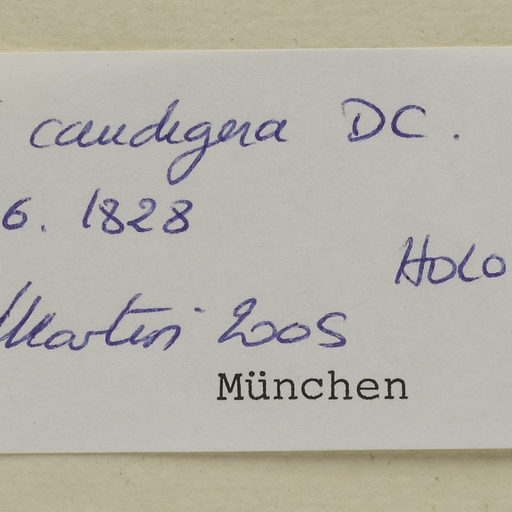 caudigera DC.
6. 1828
Holo
Martin 2005
München